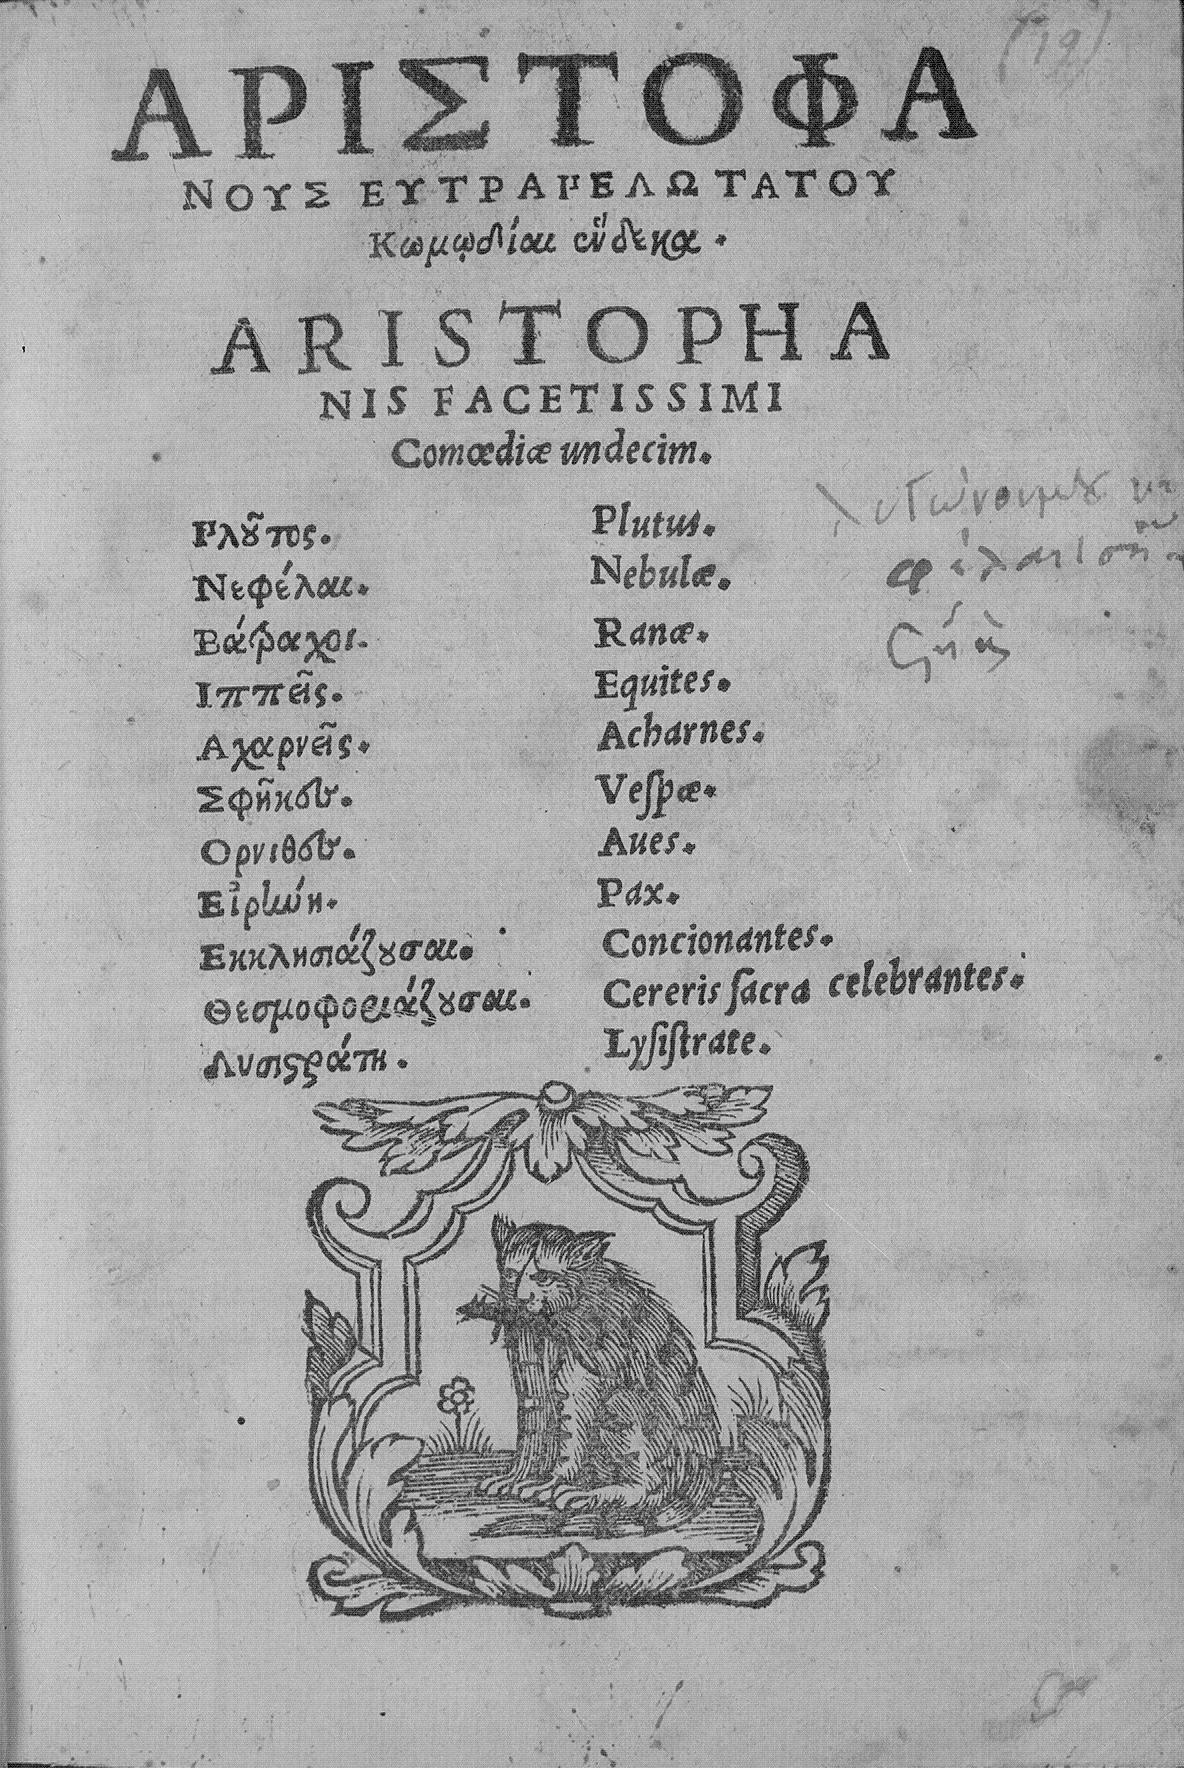 (19)
ΑΡΙΣΤΟΦΑ
ΝΟΥΣ ΕΥΤΡΑΠΕΛΩΤΑΤΟΥ
Κωμῳδίαι ἕνδεκα.
ARISTOPHA
NIS FACETISSIMI
Comœdiæ undecim.
Πλοῦτος. Plutus.
Νεφέλαι. Nebulæ.
Βάτραχοι. Ranæ.
Ιππεῖς. Equites.
Αχαρνεῖς. Acharnes.
Σφῆκες. Veſpæ.
Ορνιθες. Aues.
Εἰρήνη. Pax.
Εκκλησιάζουσαι. Concionantes.
Θεσμοφοριάζουσαι. Cereris ſacra celebrantes.
Λυσιστράτη. Lyſiſtrate.